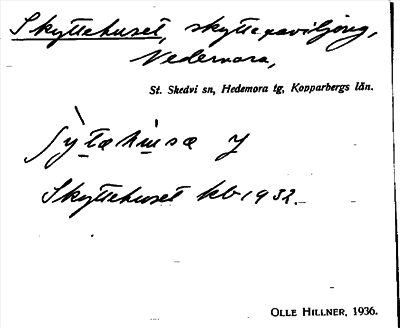 Skyttehuset, skyttepaviljong,
Vedemora,
St. Skedvi sn, Hedemora tg, Kopparbergs län.
Skyttehuset kb 1932.
OLLE HILLNER, 1936.